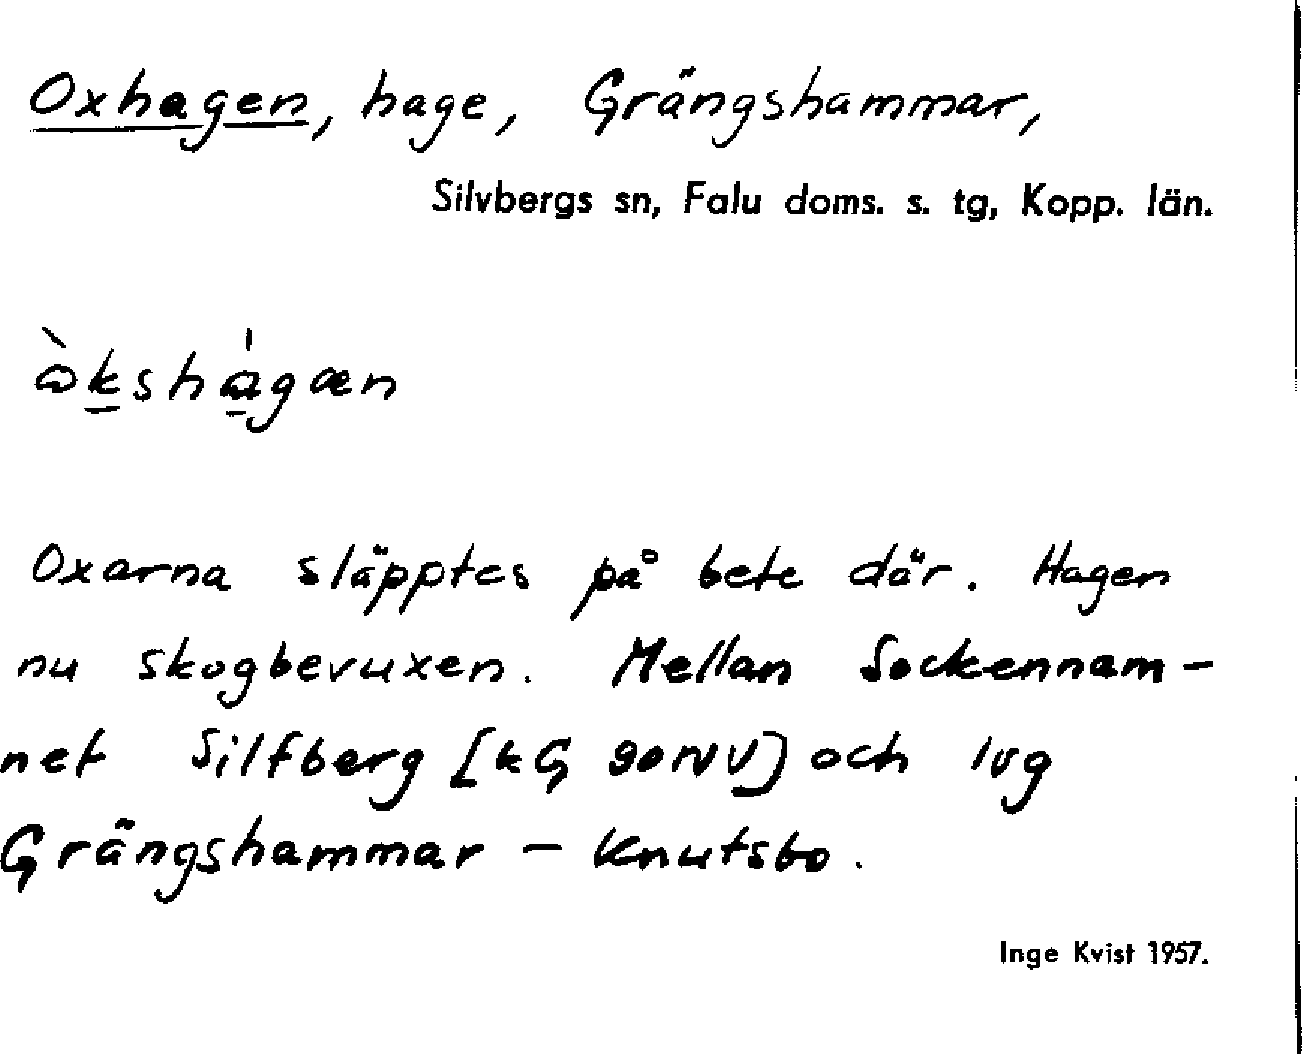 Oxhagen, hage, Grängshammar,
Silvbergs sn, Falu doms. s. tg, Kopp. län.
òkshàgæn
Oxarna släpptes på bete där. Hagen
nu skogbevuxen. Mellan Sockennam-
net Silfberg [kG 90NV] och lvg
Grängshammar – Knutsbo.
Inge Kvist 1957.